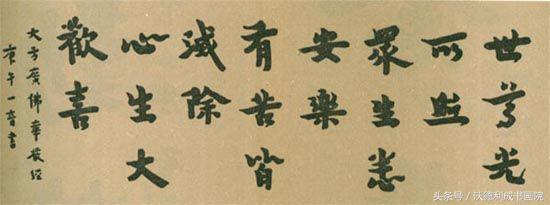 世尊光
所照
眾生悉
安樂
有苦皆
滅除
心生大
歡喜
大方廣佛華嚴經
庚午一音書
头条号/沃德利成书画院